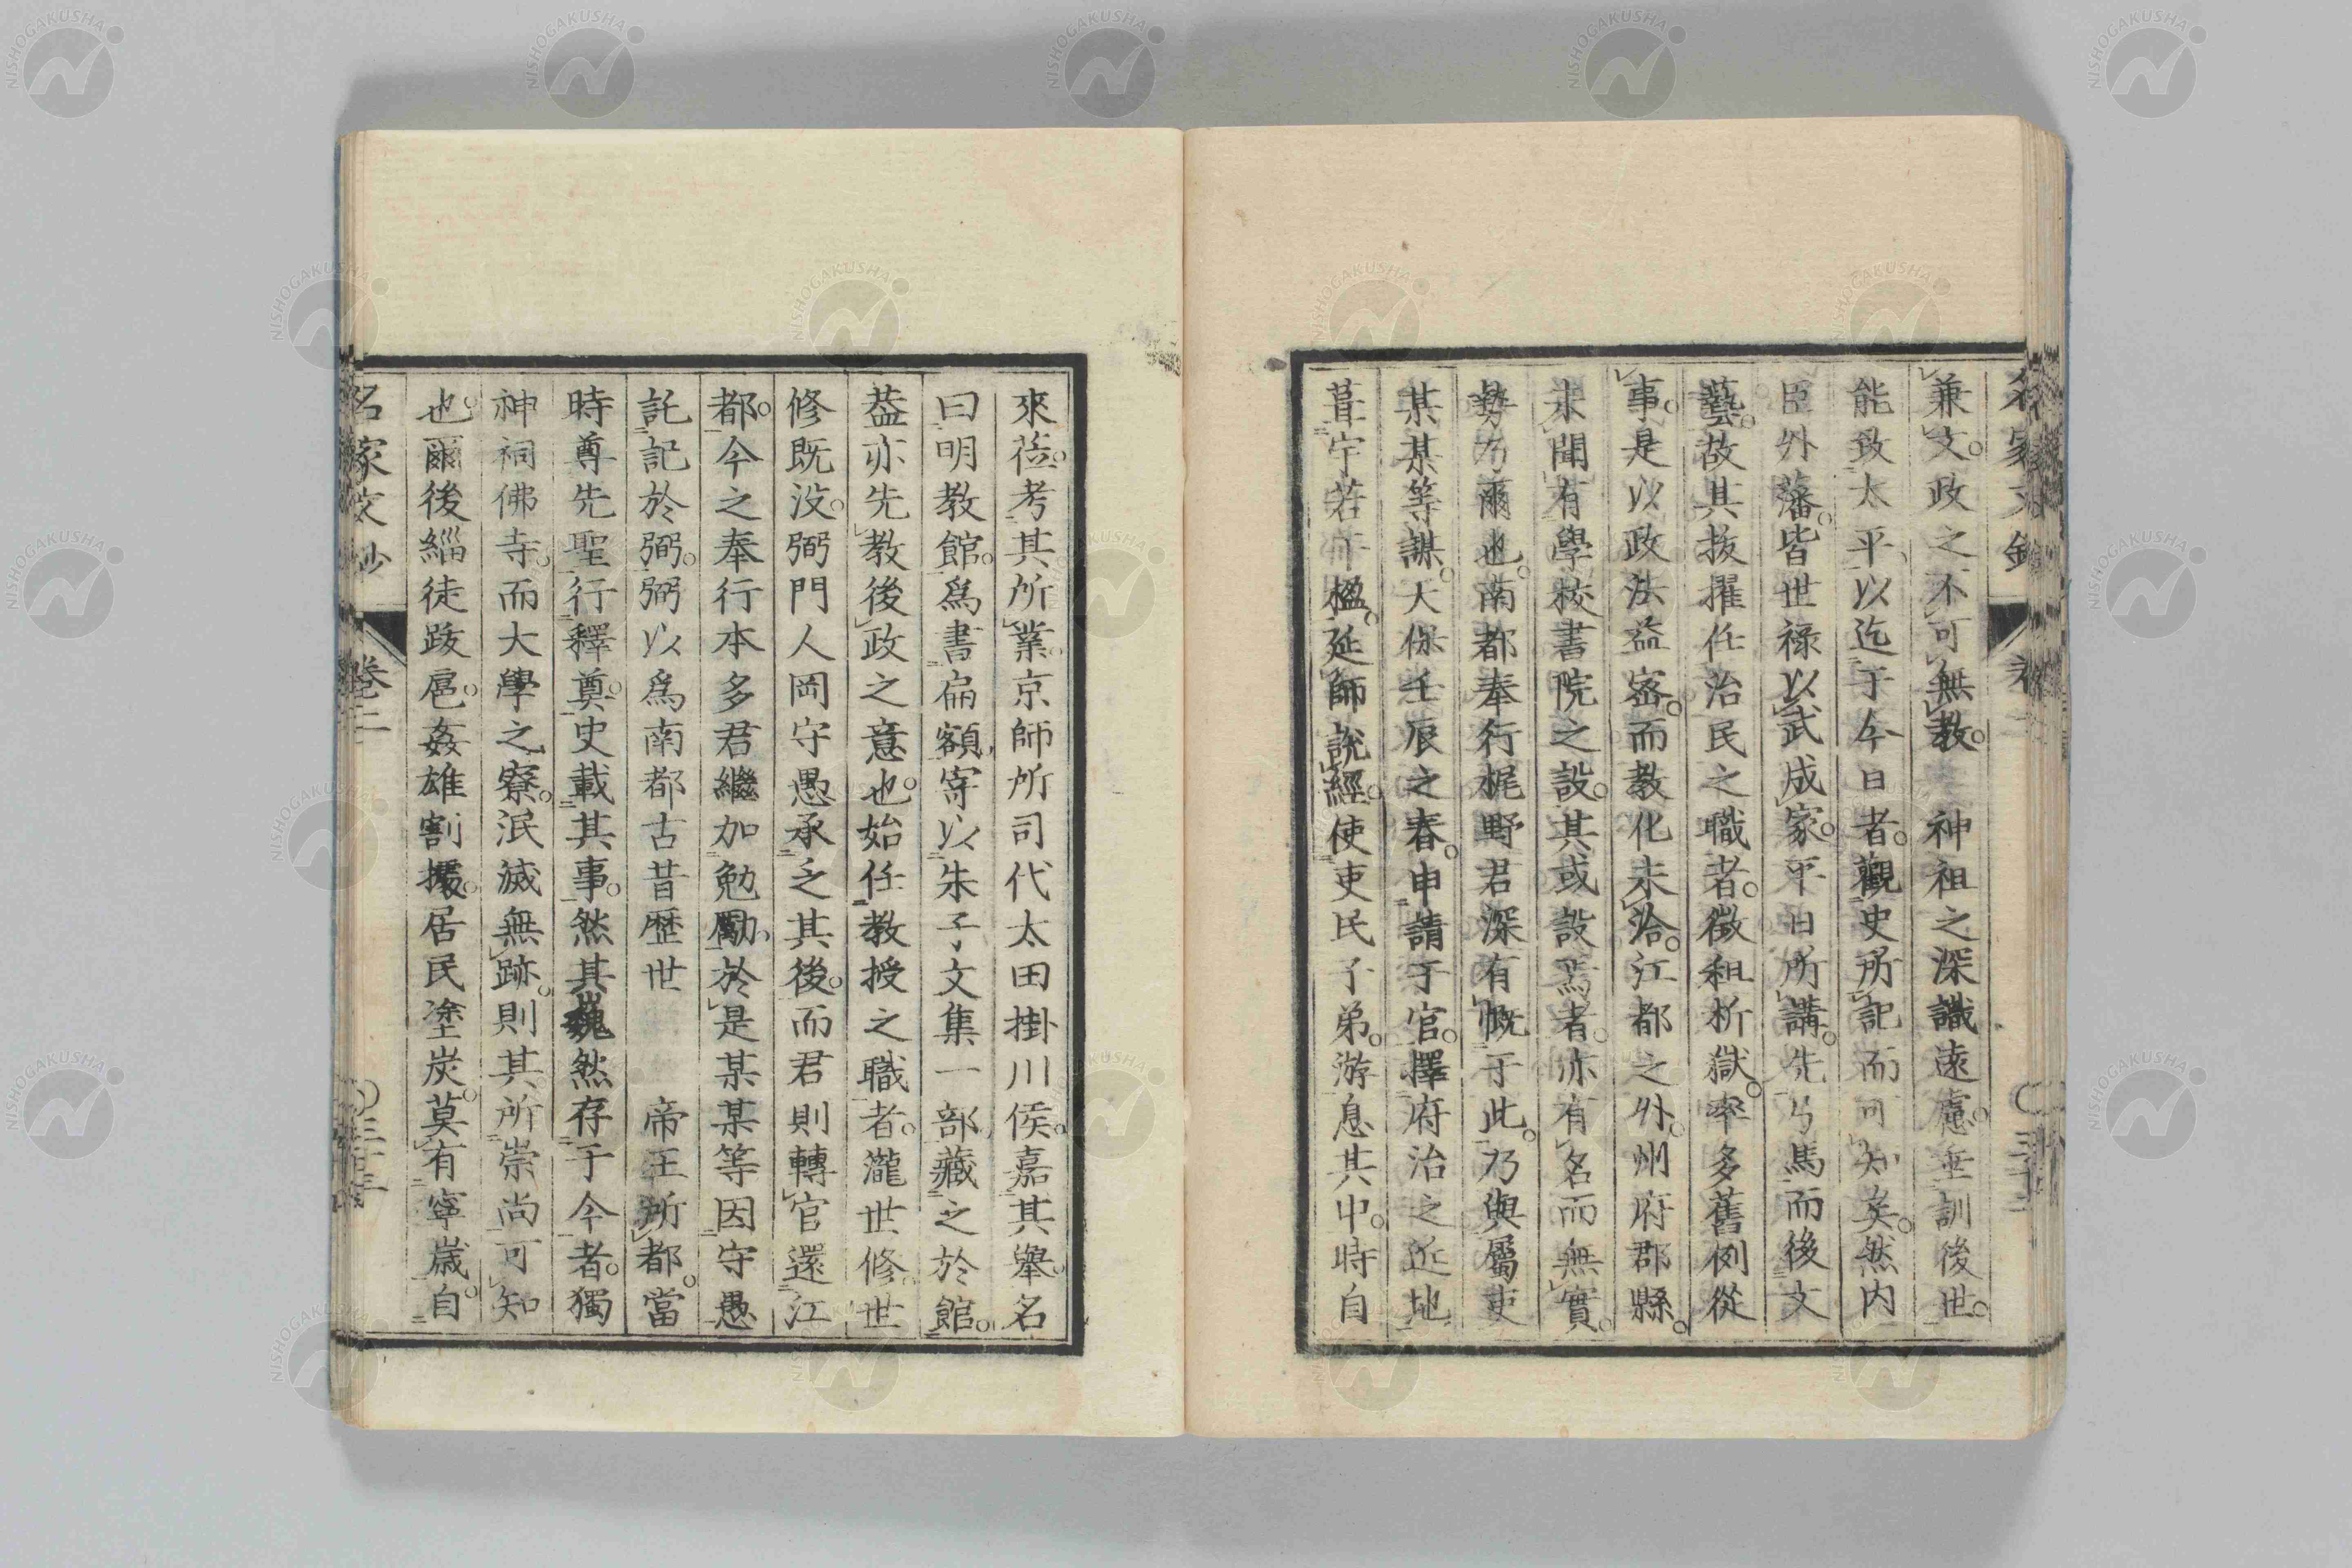 兼文。政之不可無教。神祖之深識遠慮。垂訓後世。
能致太平。以迄于今日者。觀史所記而可知矣。然内
臣外藩。皆世祿以武成家。平日所講。先弓馬而後文
藝。故其拔擢任治民之職者。徵租析獄。率多舊例從
事。是以政法益密。而教化未洽。江都之外。州府郡縣。
未聞有學校書院之設。其或設焉者。亦有名而無實。
勢乃爾也。南都奉行梶野君深有慨于此。乃與屬吏
某某等謀。天保壬辰之春。申請于官。擇府治之近地
葺宇若干楹。延師說經。使吏民子弟。游息其中。時自
來莅。考其所業。京師所司代太田掛川侯。嘉其舉。名
曰明教館。爲書扁額。寄以朱子文集一部。藏之於館。
葢亦先教後政之意也。始任教授之職者。瀧世修。世
修既沒。弼門人岡守愚承乏其後。而君則轉官還江
都。今之奉行本多君繼加勉勵。於是某某等因守愚
託記於弼。弼以爲南都古昔歷世 帝王所都。當
時尊先聖。行釋奠。史載其事。然其巍然存于今者。獨
神祠佛寺。而大學之寮。泯滅無跡。則其所崇尚可知
也。爾後緇徒跋扈。姦雄割據。居民塗炭。莫有寧歲。自
名家文抄 卷二